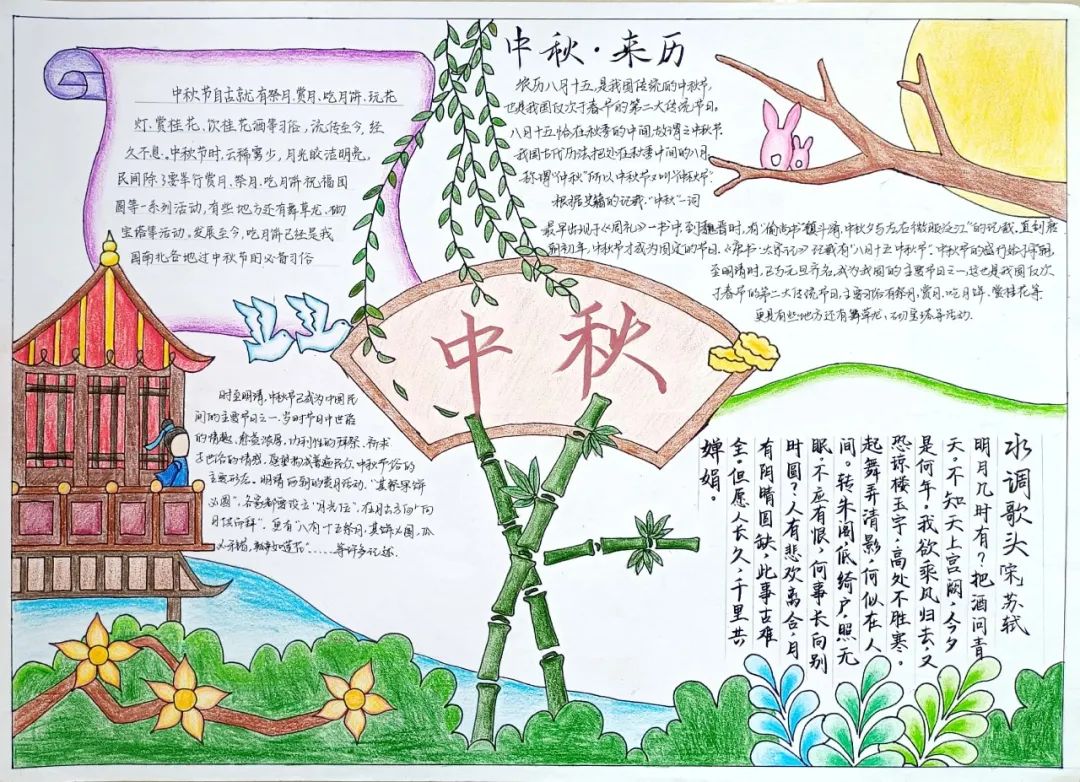 中秋·来历
中秋节自古就有祭月、赏月、吃月饼、玩花
灯、赏桂花、饮桂花酒等习俗,流传至今,经
久不息。中秋节时,云稀雾少,月光皎洁明亮。
民间除了要举行赏月、祭月、吃月饼祝福团
圆等一系列活动,有些地方还有舞草龙、砌
宝塔等活动。发展至今,吃月饼已经是我
国南北各地过中秋节的必备习俗
农历八月十五,是我国传统的中秋节,
也是我国仅次于春节的第二大传统节日。
八月十五恰在秋季的中间,故谓之中秋节.
我国古代历法把处在秋季中间的八月,
称谓"中秋"所以中秋节又叫"仲秋节".
根据史籍的记载,"中秋"一词
最早出现于《周礼》一书中
至明清时,已与元旦齐名,成为我国的主要节日之一.这也是我国仅次
于春节的第二大传统节日,主要习俗有祭月,赏月,吃月饼、赏桂花等
更是有些地方还有舞草龙、砌宝塔等活动.
中秋
时至明清,中秋节已成为中国民
间的主要节日之一.当时节日中世俗
的情趣,愈益浓厚,功利性的拜祭、祈求
主要形态。明清
必圆",各家都要设立"月光位",在月出方向"向
月供而拜".更有"八月十五祭月,其饼必圆,瓜
必牙错,瓣刻如莲花"......等许多记述.
水调歌头 宋 苏轼
明月几时有?把酒问青
天。不知天上宫阙,今夕
是何年。我欲乘风归去,又
恐谅楼玉宇,高处不胜寒。
起舞弄清影,何似在人
间。转朱阁低绮户,照无
眠。不应有恨,何事长向别
时圆?人有悲欢离合,月
有阴晴圆缺,此事古难
全。但愿人长久,千里共
婵娟。